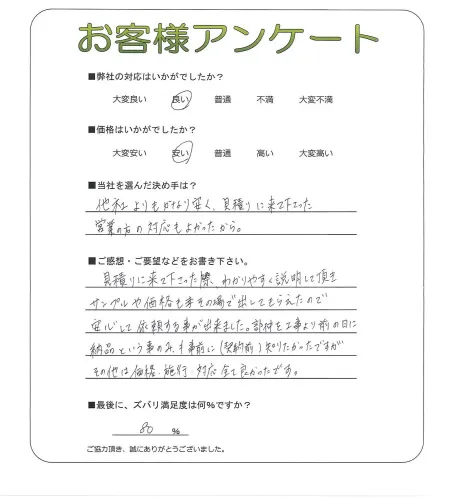 お客様アンケート
■弊社の対応はいかがでしたか?
大変良い 良い 普通 不満 大変不満
■価格はいかがでしたか?
大変安い 安い 普通 高い 大変高い
■当社を選んだ決め手は?
他社よりもかなり安く、見積りに来て下さった
営業の方の対応もよかったから。
■ご感想・ご要望などをお書き下さい。
見積りに来て下さった際、わかりやすく説明して頂き
サンプルや価格もその場で出してもらえたので
安心して依頼する事が出来ました。部材を工事より前の日に
納品という事のみ事前に(契約前)知りたかったですが
その他は価格、施行、対応全て良かったです。
■最後に、ズバリ満足度は何%ですか?
80 %
ご協力頂き、誠にありがとうございました。